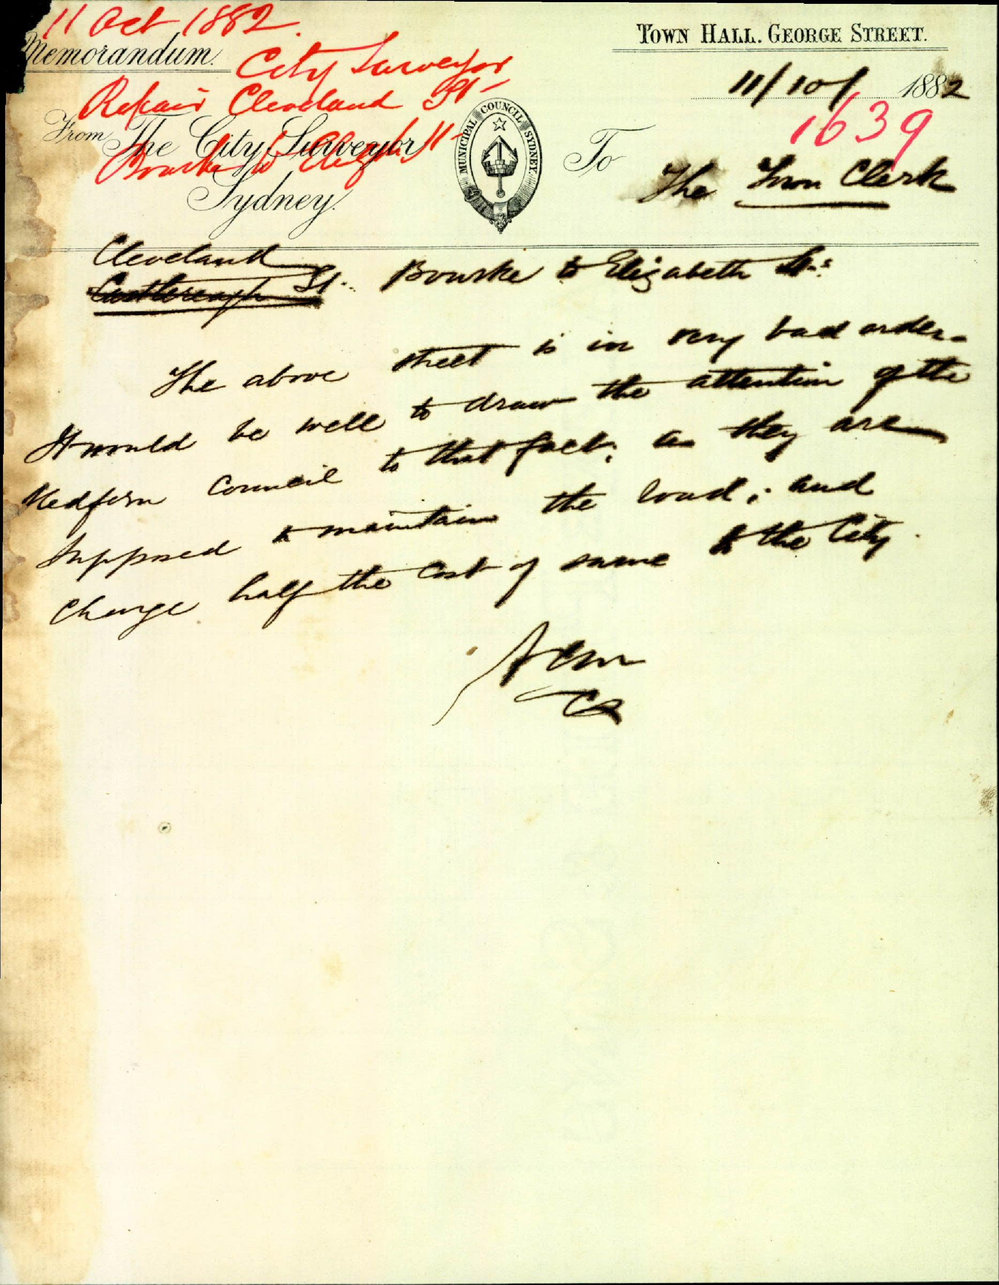 11 Oct 1882.
Memorandum.
City Surveyor
Repair Cleveland St
Bourke to Eliz. St
TOWN HALL. GEORGE STREET.
11/10/ 1882
1639
From The City Surveyor
Sydney.
MUNICIPAL COUNCIL SYDNEY
To
The Town Clerk
Cleveland
Castlereagh St. Bourke to Elizabeth Sts
The above street is in very bad order.
It would be well to draw the attention of the
Redfern Council to that fact; as they are
supposed to maintain the road; and
charge half the cost of same to the City.
CS